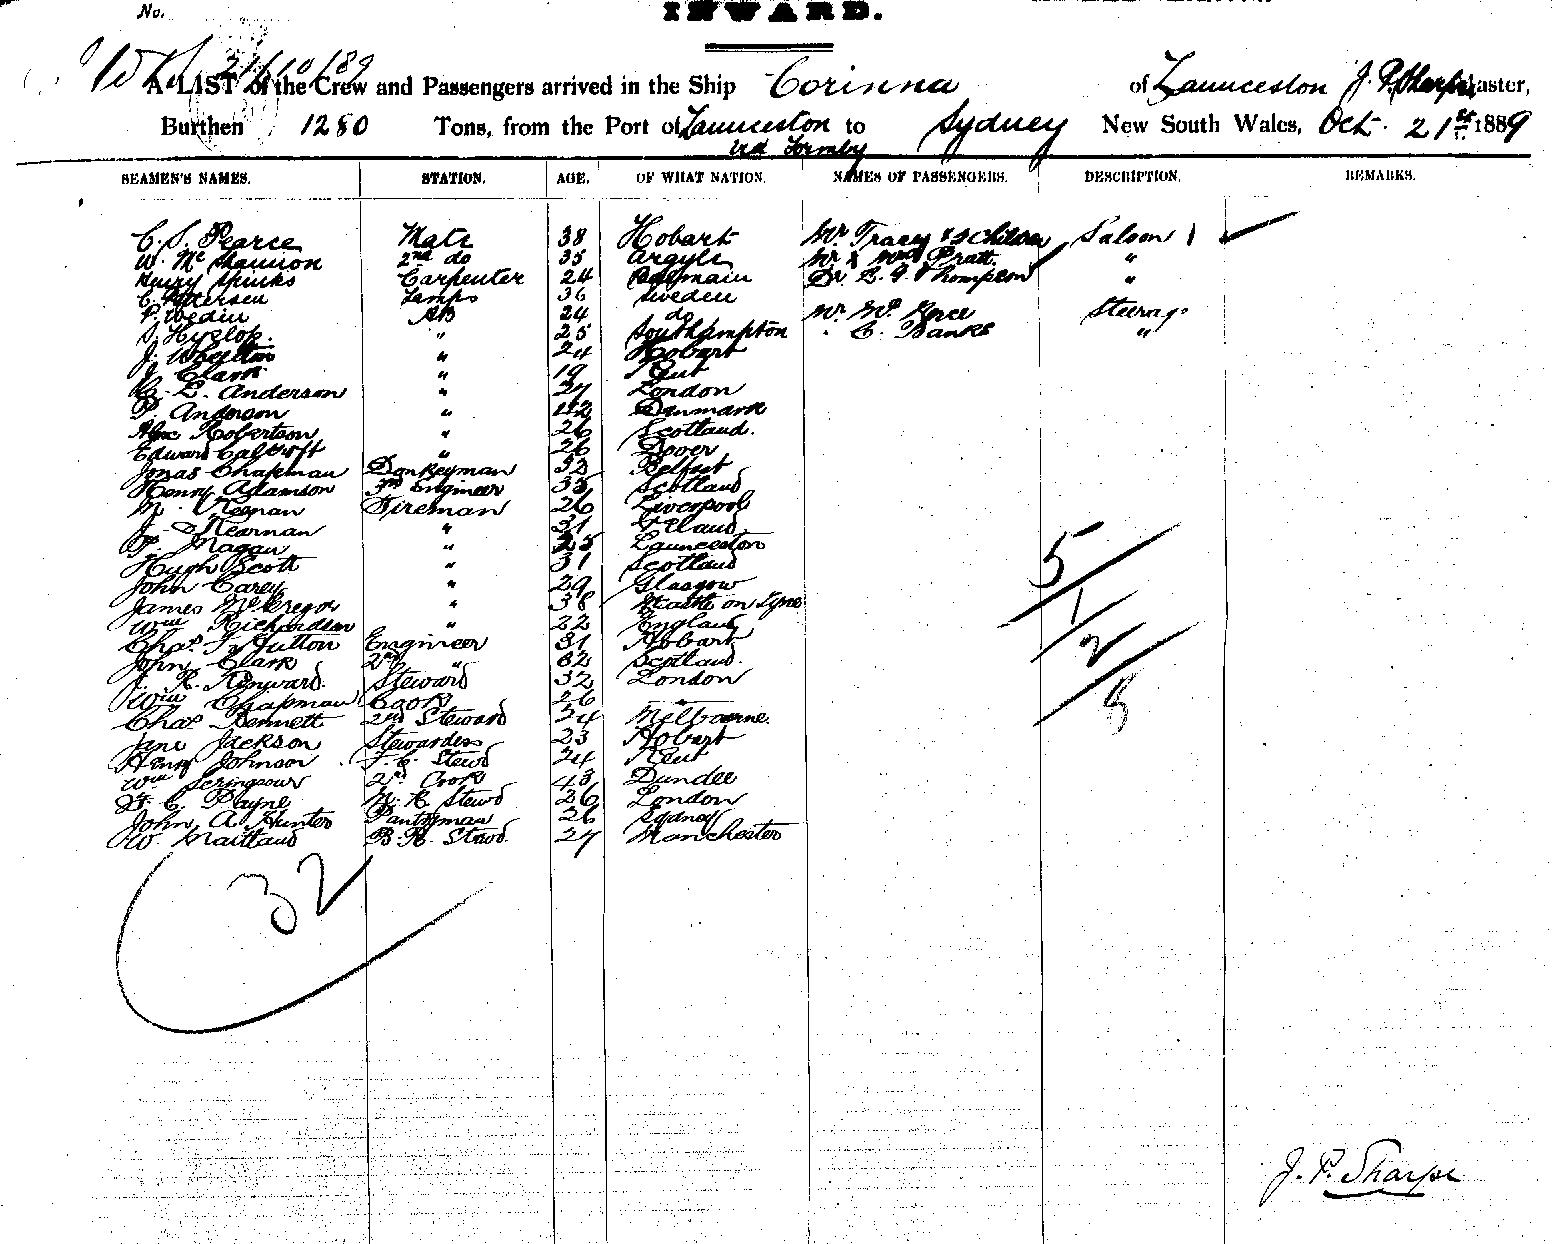 No.
INWARD.
A LIST of the Crew and Passengers arrived in the Ship Corinna of Launceston J. P. Sharpe Master,
Burthen 1280 Tons, from the Port of Launceston to Sydney New South Wales, Oct. 21st 1889
via Formby
SEAMEN'S NAMES. STATION. AGE. OF WHAT NATION. NAMES OF PASSENGERS. DESCRIPTION. REMARKS.
C. S. Pearce Mate 38 Hobart Mr Tracy & Children Saloon
W. Mc 2nd do 35 Argyle Mr & Mrs Pratt "
Henry Spinks Carpenter 24 Dr Thompson "
C. Petersen Lamps 36 Sweden
P. Wedin AB 24 do Mr Steerage
S. Hyslop. " 25 Southampton " C. Banks "
J. " 24 Hobart
J. Clark " 19 Kent
L. Anderson " 27 London
P. Anderson " 42 Denmark
Alex Robertson " 26 Scotland.
Edward " 26 Dover
Jonas Chapman Donkeyman 32 Belfast
Henry Adamson 3rd Engineer 35 Scotland
Keenan Fireman 26 Liverpool
J. Kearnan " 31
P. Nagau " 25 Launceston
Hugh Scott " 31 Scotland
John Carey " 29 Glasgow
James McGregor " 38 on Tyne
Wm Richardson " 22 England
Chas. Hutton Engineer 31 Hobart
John Clark 2nd " 32 Scotland.
J. R. Kenward. Steward 32 London
Wm Chapman Cook 26 "
Chas Bennett 2nd Steward 24 Melbourne.
Jane Jackson Stewardess 23 Hobart
Henry Johnson F. C. Stewd 24 Kent
Wm Scringeour 2nd Cook 43 Dundee
C. Payne Stewd 26 London
John A. Hunter Pantryman 26 Sydney
W. Maitland Stewd. 27 Manchester
5
1
2
8
32
J. P. Sharpe